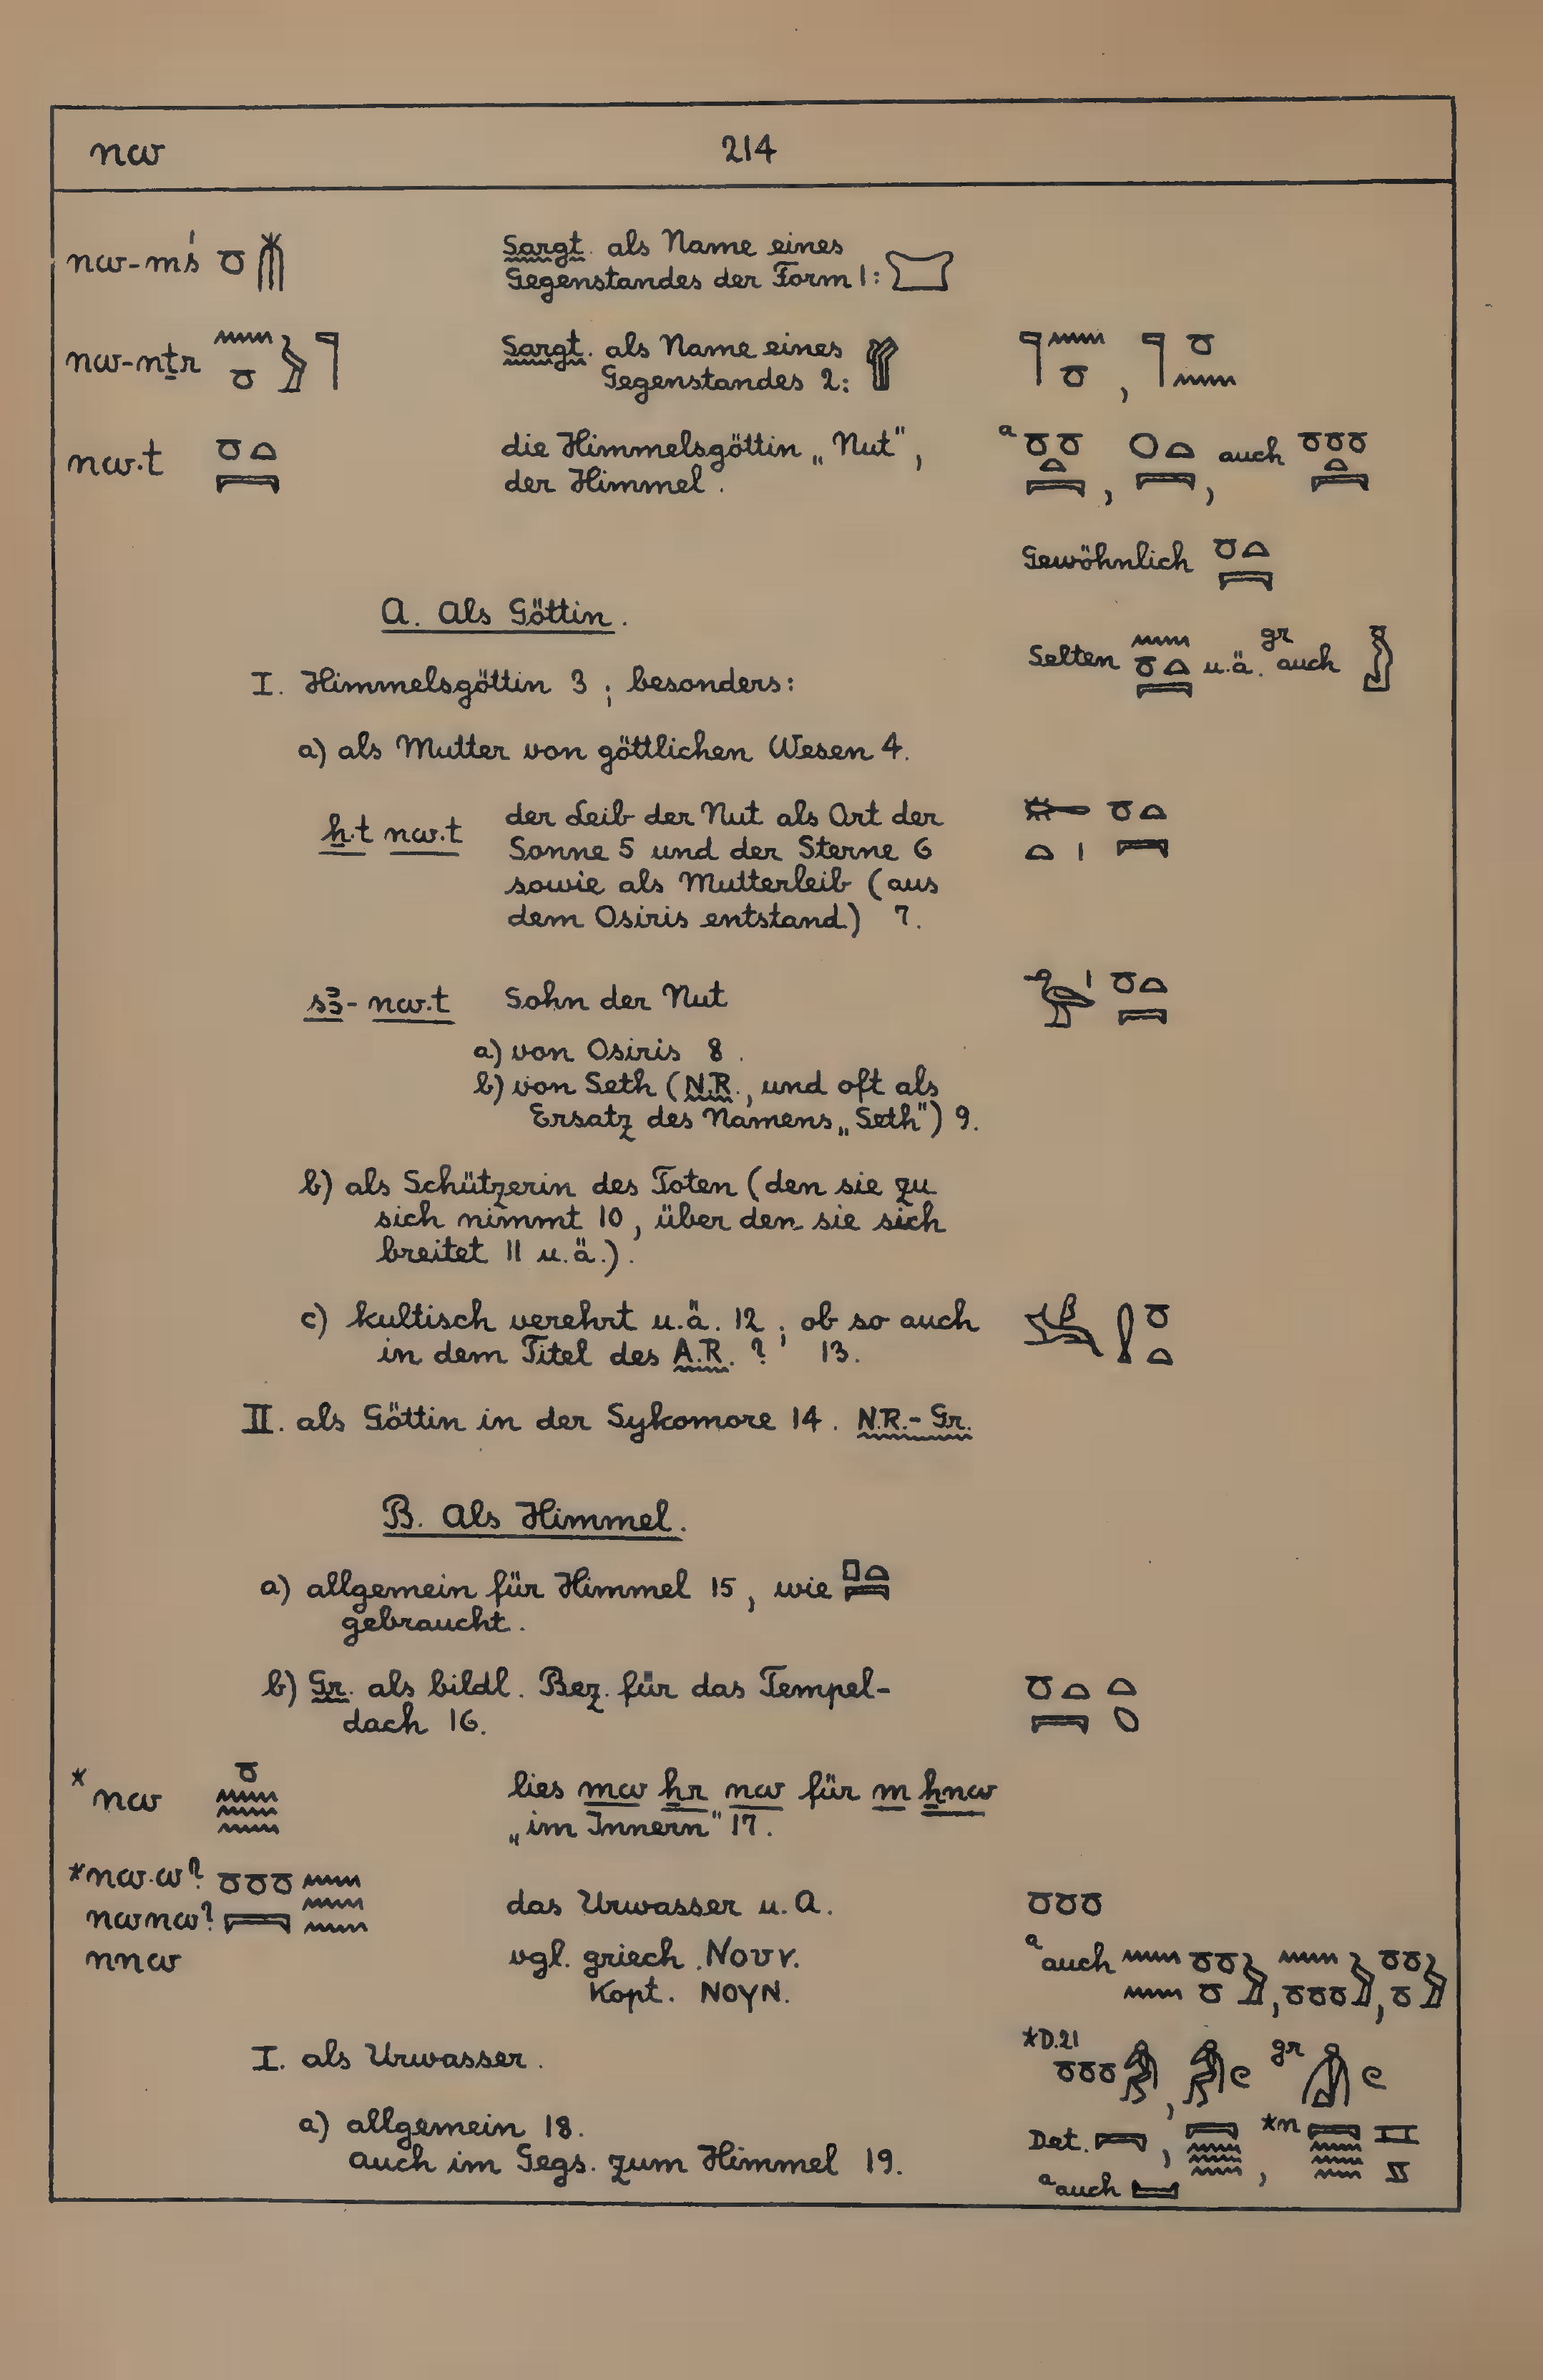 nw 214
nw-mś Sargt. als Name eines
Gegenstandes der Form 1:
nw-nṯr Sargt. als Name eines
Gegenstandes 2:
nw.t die Himmelsgöttin „Nut", a , , auch
der Himmel.
Gewöhnlich
A. Als Göttin.
Selten u.ä. gr auch
I. Himmelsgöttin 3; besonders:
a) als Mutter von göttlichen Wesen 4.
ẖ.t nw.t der Leib der Nut als Ort der
Sonne 5 und der Sterne 6
sowie als Mutterleib (aus
dem Osiris entstand) 7.
sꜣ-nw.t Sohn der Nut
a) von Osiris 8.
b) von Seth (N.R., und oft als
Ersatz des Namens „Seth") 9.
b) als Schützerin des Toten (den sie zu
sich nimmt 10, über den sie sich
breitet 11 u.ä.).
c) kultisch verehrt u.ä. 12; ob so auch
in dem Titel des A.R.? 13.
II. als Göttin in der Sykomore 14. N.R.-Gr.
B. Als Himmel.
a) allgemein für Himmel 15, wie
gebraucht.
b) Gr. als bildl. Bez. für das Tempel-
dach 16.
*nw lies mw ẖr nw für m ẖnw
„im Innern" 17.
*nw.w?
nwnw? das Urwasser u. A.
nnw vgl. griech. Νουν. a auch
Kopt. ΝΟΥΝ.
*D.21 gr
I. als Urwasser.
a) allgemein 18. Det. , , *n
auch im Gegs. zum Himmel 19.
a auch